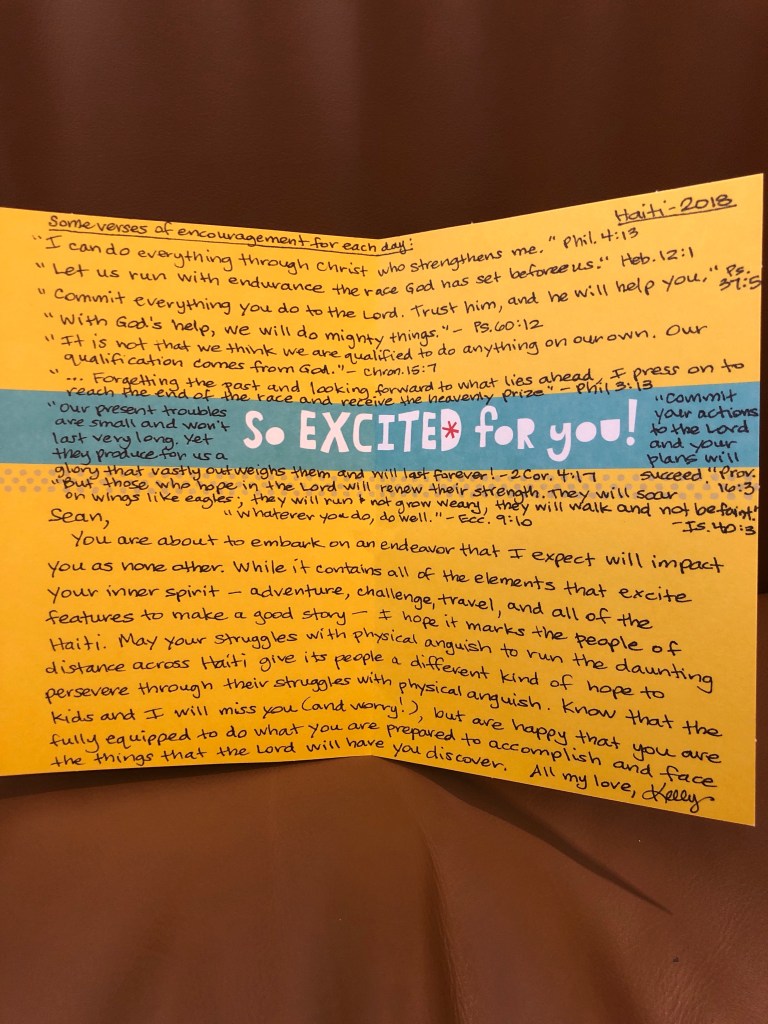 Haiti-2018
Some verses of encouragement for each day:
"I can do everything through Christ who strengthens me." Phil. 4:13
"Let us run with endurance the race God has set before us." Heb. 12:1
"Commit everything you do to the Lord. Trust him, and he will help you." Ps. 37:5
"With God's help, we will do mighty things." - Ps. 60:12
"It is not that we think we are qualified to do anything on our own. Our
qualification comes from God." - Chron. 15:7
"... Forgetting the past and looking forward to what lies ahead, I press on to
reach the end of the race and receive the heavenly prize" - Phil 3:13
"Our present troubles
are small and won't
last very long. Yet
they produce for us a
glory that vastly outweighs them and will last forever! - 2 Cor. 4:17
So EXCITED* foR you!
"Commit
your actions
to the Lord
and your
plans will
succeed" Prov. 16:3
"But those who hope in the Lord will renew their strength. They will soar
on wings like eagles; they will run & not grow weary, they will walk and not be faint."
- Is. 40:3
"Whatever you do, do well." - Ecc. 9:10
Sean,
You are about to embark on an endeavor that I expect will impact
you as none other. While it contains all of the elements that excite
your inner spirit - adventure, challenge, travel, and all of the
features to make a good story - I hope it marks the people of
Haiti. May your struggles with physical anguish to run the daunting
distance across Haiti give its people a different kind of hope to
persevere through their struggles with physical anguish. Know that the
kids and I will miss you (and worry!), but are happy that you are
fully equipped to do what you are prepared to accomplish and face
the things that the Lord will have you discover. All my love, Kelly